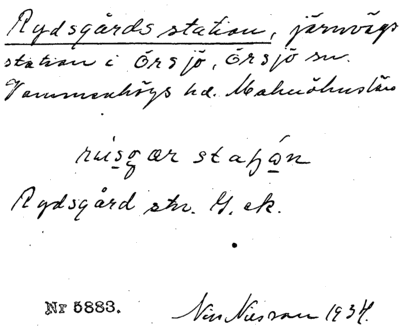 Rydsgårds station, järnvägs
station i Örsjö, Örsjö sn.
Vemmenhögs hd. Malmöhus län
Rydsgård stn. G. ek.
Nr 5883.
Nils Nilsson 1934.